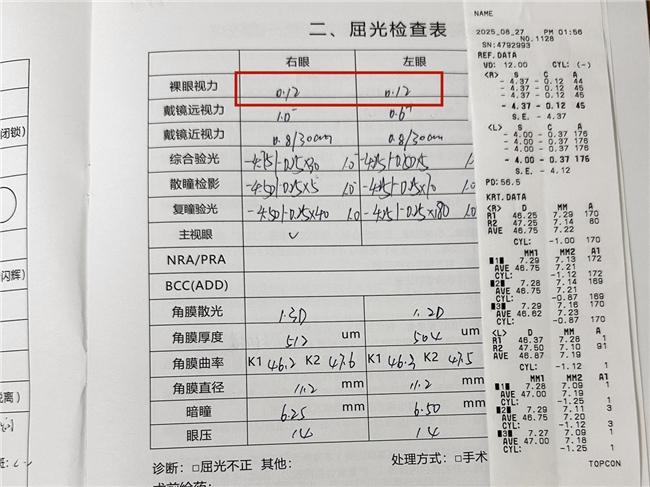 二、屈光检查表
右眼 左眼
裸眼视力 0.12 0.12
戴镜远视力 1.0⁻ 0.6⁺
戴镜近视力 0.8/30cm 0.8/30cm
综合验光 -4.75/-0.25×30 1.0⁻
散瞳检影 -4.50/-0.25×5 1.0
复瞳验光 -4.50/-0.25×40 1.0 -4.25/-0.25×180 1.0
主视眼
NRA/PRA
BCC(ADD)
角膜散光 1.3D 1.2D
角膜厚度 512 um 504 um
角膜曲率 K1 46.2 K2 47.6 K1 46.3 K2 47.5
角膜直径 11.2 mm 11.2 mm
暗瞳 6.25 mm 6.50 mm
眼压 14 14
诊断：□屈光不正 其他: 处理方式：□手术
术前给药:
闭锁)
闪辉)
脱离)
NAME
2025_08_27 PM 01:56
NO.1128
SN:4792993
REF.DATA
VD: 12.00 CYL: (-)
<R> S C A
- 4.37 - 0.12 44
- 4.37 - 0.12 45
- 4.37 - 0.12 45
- 4.37 - 0.12 45
S.E. - 4.37
<L> S C A
- 4.00 - 0.37 176
- 4.00 - 0.37 176
- 4.00 - 0.37 176
- 4.00 - 0.37 176
S.E. - 4.12
PD: 56.5
KRT.DATA
<R> D MM A
R1 46.25 7.29 170
R2 47.25 7.14 80
AVE 46.75 7.22
CYL: -1.00 170
MM1 MM2 A1
■1■ 7.29 7.13 172
AVE 46.75 7.21
CYL: -1.12 172
■2■ 7.28 7.14 169
AVE 46.75 7.21
CYL: -0.87 169
■3■ 7.29 7.16 170
AVE 46.62 7.23
CYL: -0.87 170
<L> D MM A
R1 46.37 7.28 1
R2 47.50 7.10 91
AVE 46.87 7.19
CYL: -1.12 1
MM1 MM2 A1
■1■ 7.28 7.09 1
AVE 47.00 7.19
CYL: -1.25 1
■2■ 7.29 7.11 3
AVE 46.75 7.20
CYL: -1.25 3
■3■ 7.27 7.09 1
AVE 47.00 7.18
CYL: -1.25 1
TOPCON